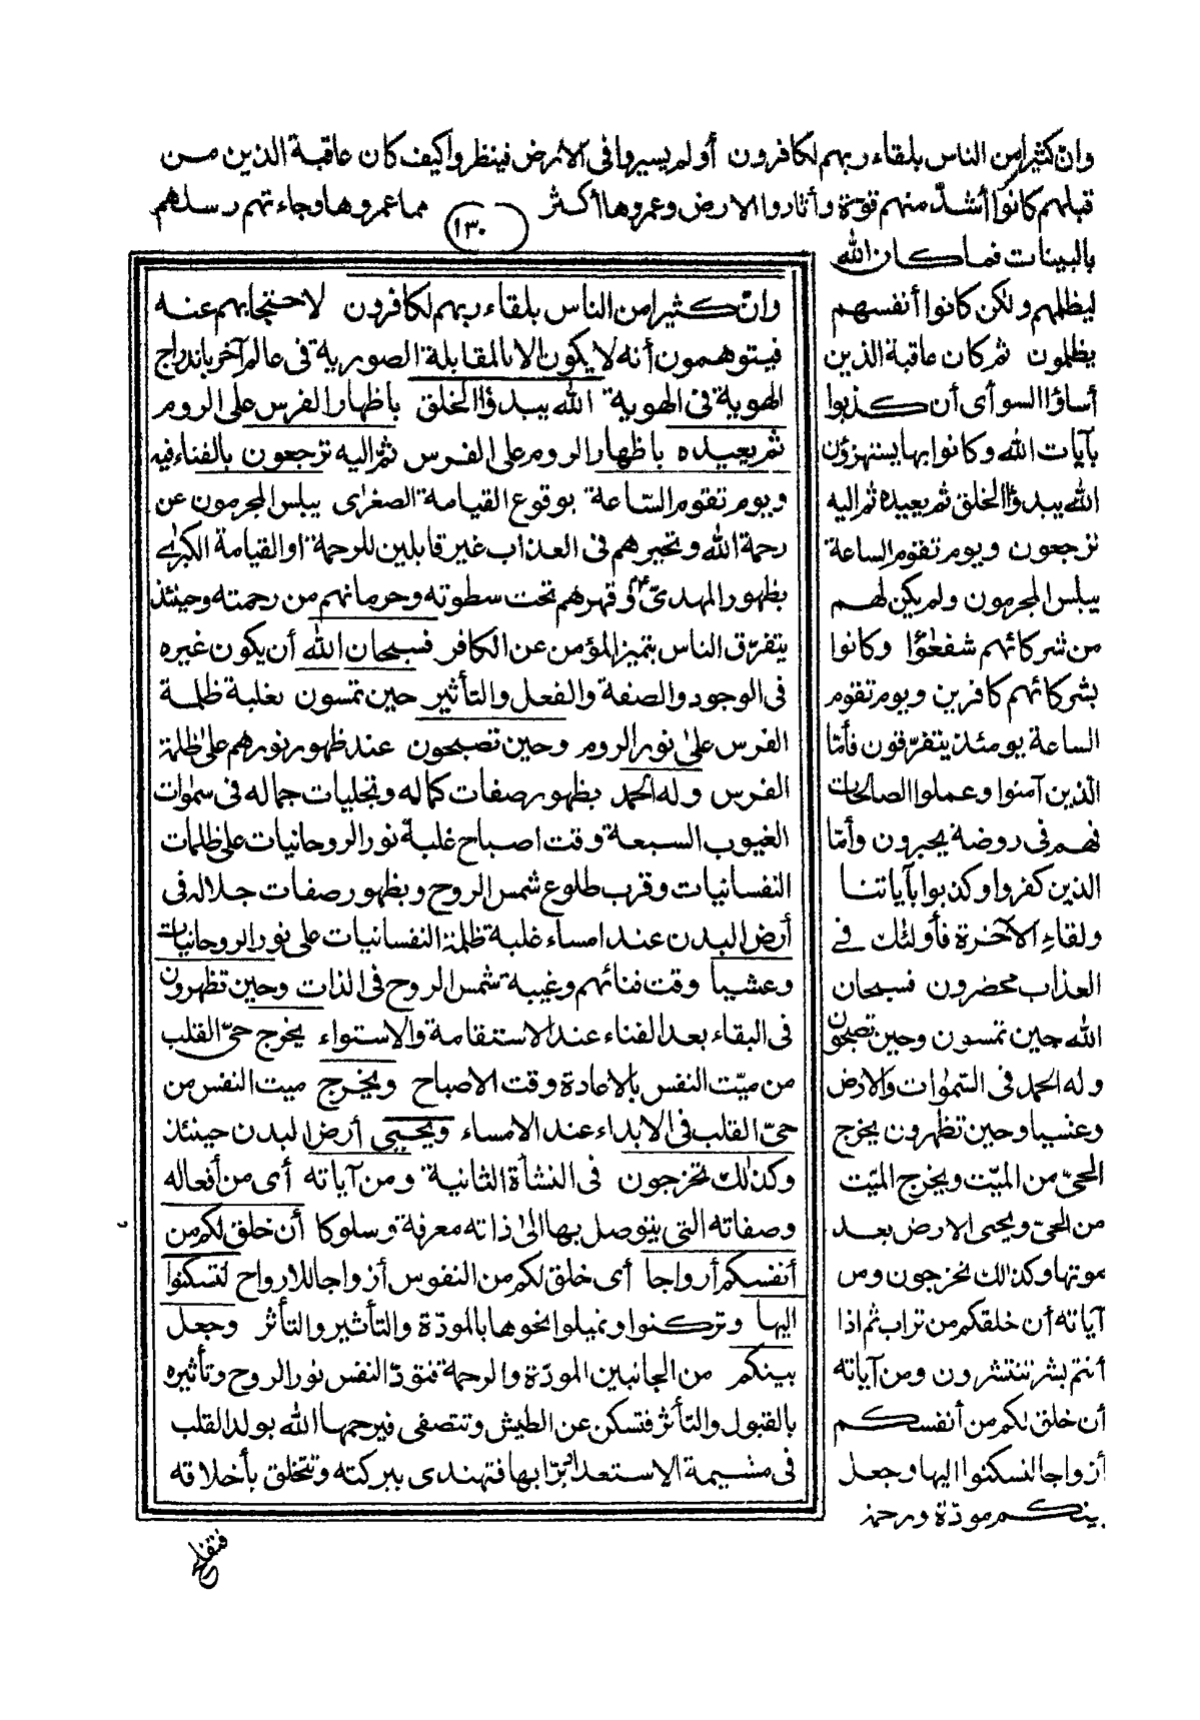 وان كثيرا من الناس بلقاء ربهم لكافرون أولم يسيروا في الارض فينظروا كيف كان عاقبة الذين من
قبلهم كانوا أشد منهم قوة وأثاروا الارض وعمروها أكثر مما عمروها وجاءتهم رسلهم
١٣٠
بالبينات فما كان الله
ليظلمهم ولكن كانوا أنفسهم
يظلمون ثم كان عاقبة الذين
أساؤا السوأى أن كذبوا
بآيات الله وكانوا بها يستهزؤن
الله يبدؤا الخلق ثم يعيده ثم اليه
ترجعون ويوم تقوم الساعة
يبلس المجرمون ولم يكن لهم
من شركائهم شفعؤا وكانوا
بشركائهم كافرين ويوم تقوم
الساعة يومئذ يتفرّقون فأمّا
الذين آمنوا وعملوا الصالحات
فهم في روضة يحبرون وأمّا
الذين كفروا وكذبوا بآياتنا
ولقاء الآخرة فأولئك في
العذاب محضرون فسبحان
الله حين تمسون وحين تصبحون
وله الحمد في السموات والارض
وعشيا وحين تظهرون يخرج
الحيّ من الميّت ويخرج الميّت
من الحيّ ويحيى الارض بعد
موتها وكذلك تخرجون ومن
آياته أن خلقكم من تراب ثم اذا
أنتم بشر تنتشرون ومن آياته
أن خلق لكم من أنفسكم
أزواجا لتسكنوا اليها وجعل
بينكم مودّة ورحمة
وانّ كثيرا من الناس بلقاء ربهم لكافرون لاحتجابهم عنه
فيتوهمون أنه لا يكون الا بالمقابلة الصورية في عالم آخر باندراج
الهوية في الهوية الله يبدؤا الخلق باظهار الفرس على الروم
ثم يعيده باظهار الروم على الفرس ثم اليه ترجعون بالفناء فيه
ويوم تقوم الساعة بوقوع القيامة الصغرى يبلس المجرمون عن
رحمة الله وتحيرهم في العذاب غير قابلين للرحمة أو القيامة الكبرى
بظهور المهدىّ وقهرهم تحت سطوته وحرمانهم من رحمته وحينئذ
يتفرّق الناس بتميز المؤمن عن الكافر فسبحان الله أن يكون غيره
في الوجود والصفة والفعل والتأثير حين تمسون بغلبة ظلمة
الفرس على نور الروم وحين تصبحون عند ظهور نورهم على ظلمة
الفرس وله الحمد بظهور صفات كماله وتجليات جماله في سموات
الغيوب السبعة وقت اصباح غلبة نور الروحانيات على ظلمات
النفسانيات وقرب طلوع شمس الروح وبظهور صفات جلاله في
أرض البدن عند امساء غلبة ظلمة النفسانيات على نور الروحانيات
وعشيا وقت فنائهم وغيبة شمس الروح في الذات وحين تظهرون
في البقاء بعد الفناء عند الاستقامة والاستواء يخرج حيّ القلب
من ميّت النفس بالاعادة وقت الاصباح ويخرج ميت النفس من
حيّ القلب في الابداء عند الامساء ويحيى أرض البدن حينئذ
وكذلك تخرجون في النشأة الثانية ومن آياته أى من أفعاله
وصفاته التى يتوصل بها الى ذاته معرفة وسلوكا أن خلق لكم من
أنفسكم أزواجا أى خلق لكم من النفوس أزواجا للارواح لتسكنوا
اليها وتركنوا وتميلوا نحوها بالمودّة والتأثير والتأثر وجعل
بينكم من الجانبين المودّة والرحمة فتودّ النفس نور الروح وتأثيره
بالقبول والتأثر فتسكن عن الطيش وتتصفى فيرحمها الله بولد القلب
في مشيمة الاستعداد برّا بها فتهتدى ببركته وتتخلق بأخلاقه
فتفلح